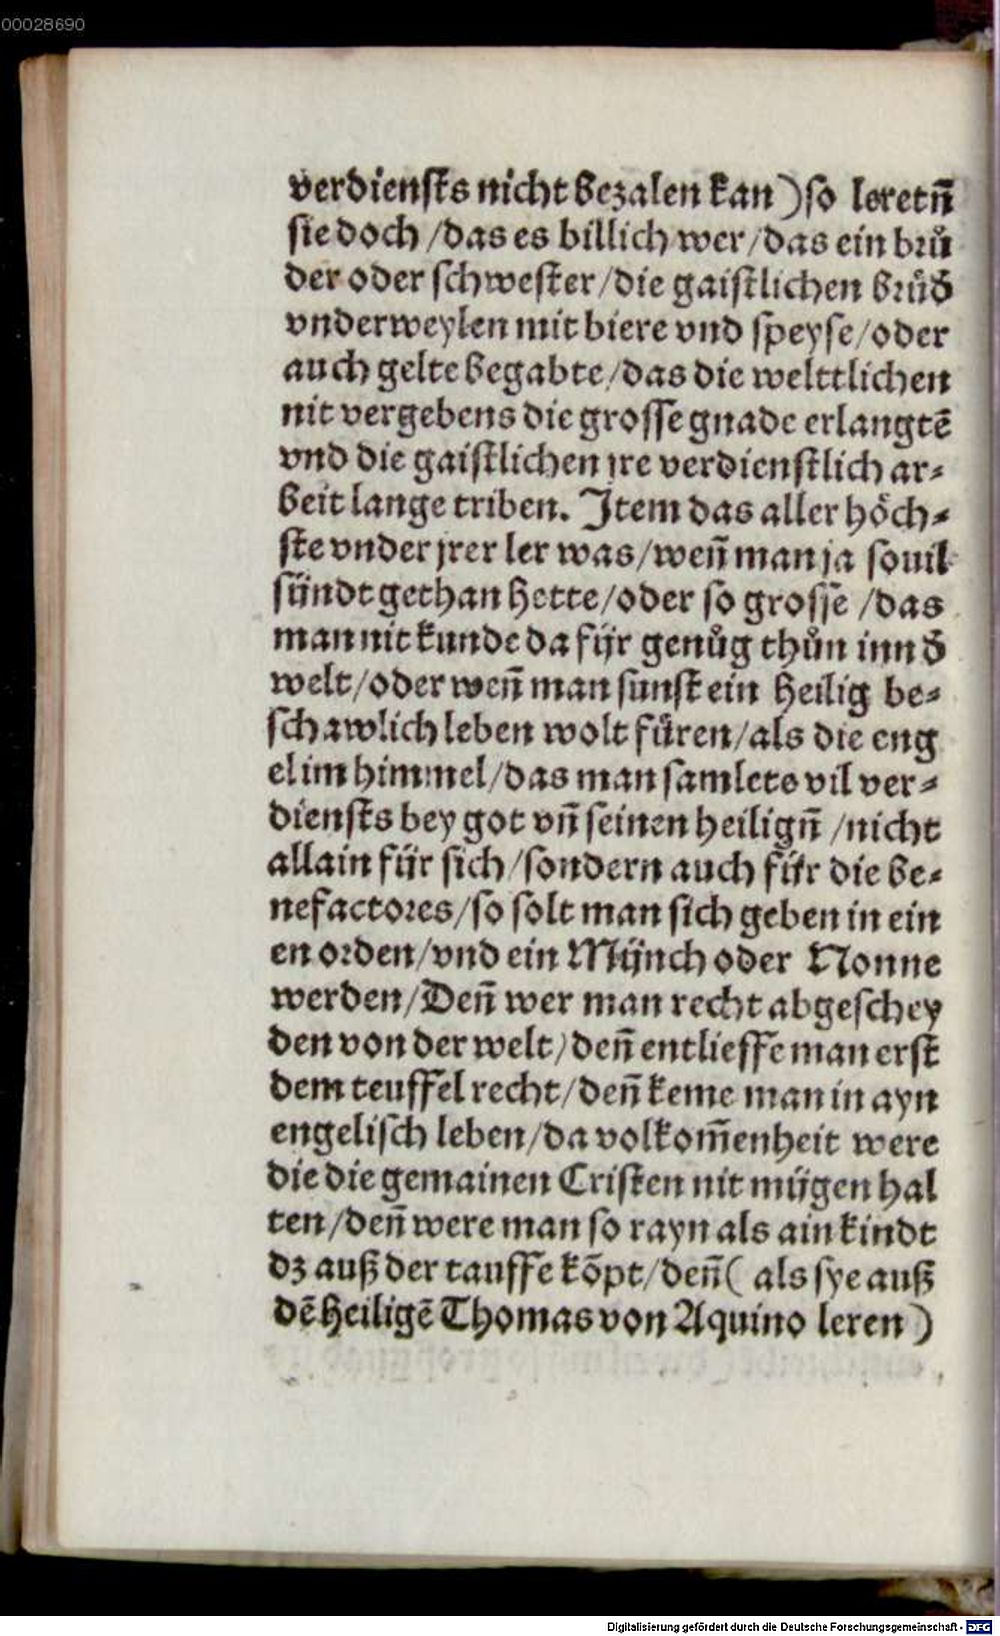 00028690
verdiensts nicht bezalen kan) so leretn̄
sie doch /das es billich wer/das ein brů
der oder schwester/die gaistlichen brůd̄
vnderweylen mit biere vnd speyse/oder
auch gelte begabte/das die welttlichen
nit vergebens die grosse gnade erlangtē
vnd die gaistlichen jre verdienstlich ar⸗
beit lange triben. Item das aller hoͤch⸗
ste vnder jrer ler was/wen̄ man ja souil
sündt gethan hette/oder so grosse /das
man nit kunde da für genůg thůn inn d̄
welt/oder wen̄ man sunst ein heilig be⸗
schawlich leben wolt füren/als die eng
el im himmel/das man samlete vil ver⸗
diensts bey got vn̄ seinen heilign̄ /nicht
allain für sich/sondern auch für die be⸗
nefactores/so solt man sich geben in ein
en orden/vnd ein Münch oder Nonne
werden/Den̄ wer man recht abgeschey
den von der welt/den̄ entlieffe man erst
dem teuffel recht/den̄ keme man in ayn
engelisch leben/da volkom̄enheit were
die die gemainen Cristen nit mügen hal
ten/den̄ were man so rayn als ain kindt
dz auß der tauffe kōpt/den̄ ( als sye auß
dē heiligē Thomas von Aquino leren )
Digitalisierung gefördert durch die Deutsche Forschungsgemeinschaft - DFG